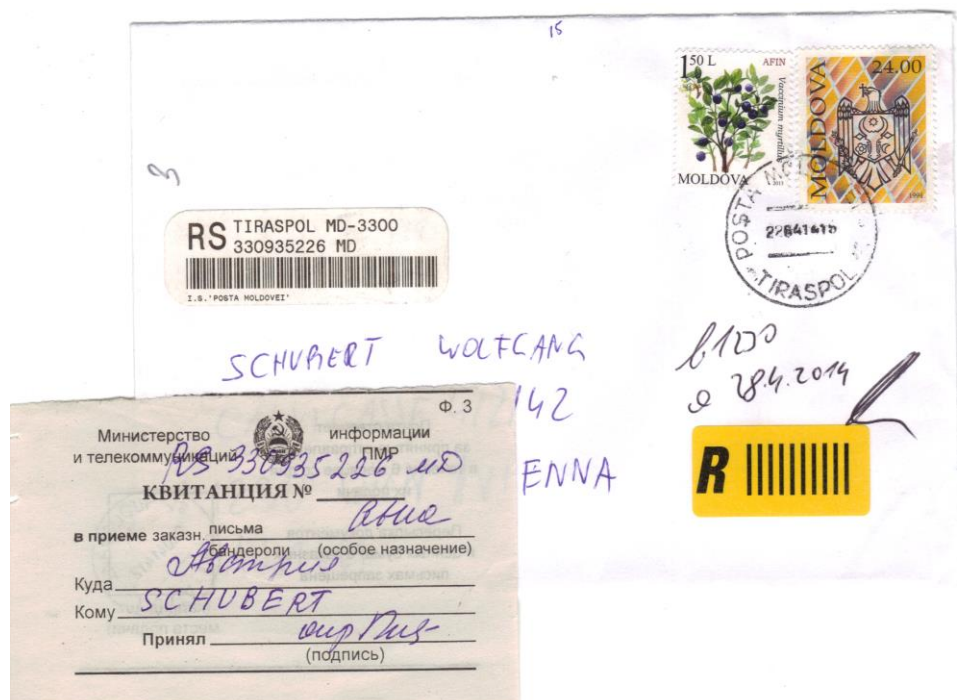 15
1.50 L AFIN
Vaccinium myrtillus
MOLDOVA
2013
24.00
MOLDOVA
POSTA MO
TIRASPOL
3
RS TIRASPOL MD-3300
330935226 MD
I.S.'POSTA MOLDOVEI'
SCHUBERT WOLFGANG
142
ENNA
28.4.2014
R
Ф. 3
Министерство информации
и телекоммуникаций ПМР
RS 330935226 MD
КВИТАНЦИЯ №
Авиа
в приеме заказн. письма
бандероли (особое назначение)
Куда Австрия
Кому SCHUBERT
Принял
(подпись)